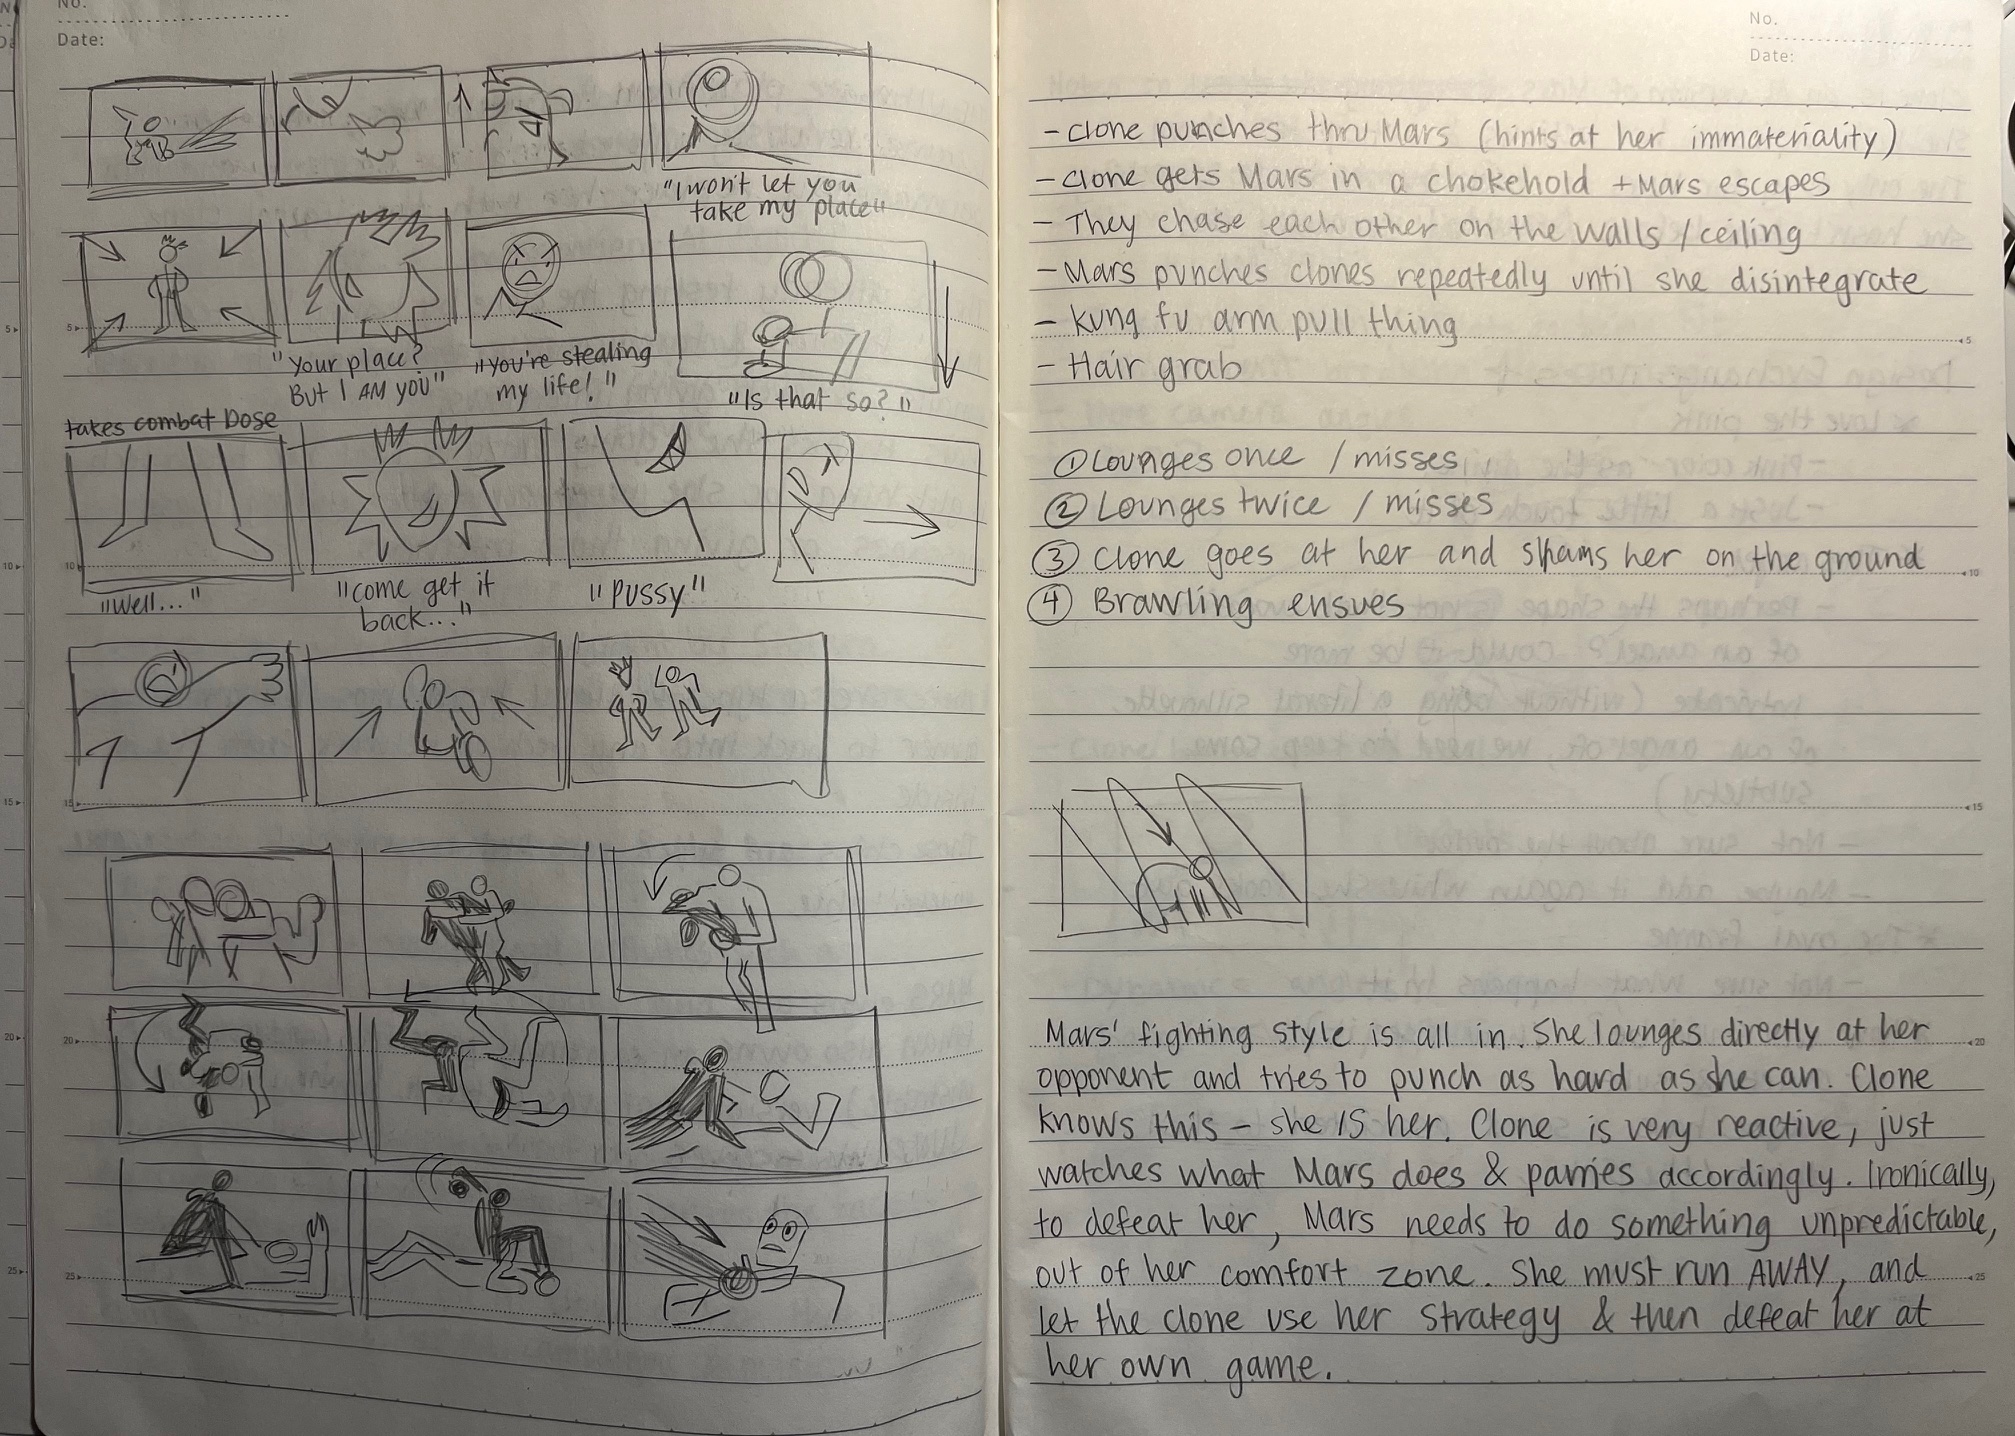 No.
Date:
"I won't let you
take my place"
"Your place?
But I AM you"
"You're stealing
my life!"
"Is that so?"
takes combat Dose
"Well..."
"come get it
back..."
"Pussy"
No.
Date:
- clone punches thru Mars (hints at her immateriality)
- clone gets Mars in a chokehold + Mars escapes
- They chase each other on the walls / ceiling
- Mars punches clones repeatedly until she disintegrate
- kung fu arm pull thing
- Hair grab
① Lounges once / misses
② Lounges twice / misses
③ Clone goes at her and slams her on the ground
④ Brawling ensues
Mars' fighting style is all in. She lounges directly at her
opponent and tries to punch as hard as she can. Clone
knows this – she IS her. Clone is very reactive, just
watches what Mars does & parries accordingly. Ironically,
to defeat her, Mars needs to do something unpredictable,
out of her comfort zone. She must run AWAY, and
let the clone use her strategy & then defeat her at
her own game.